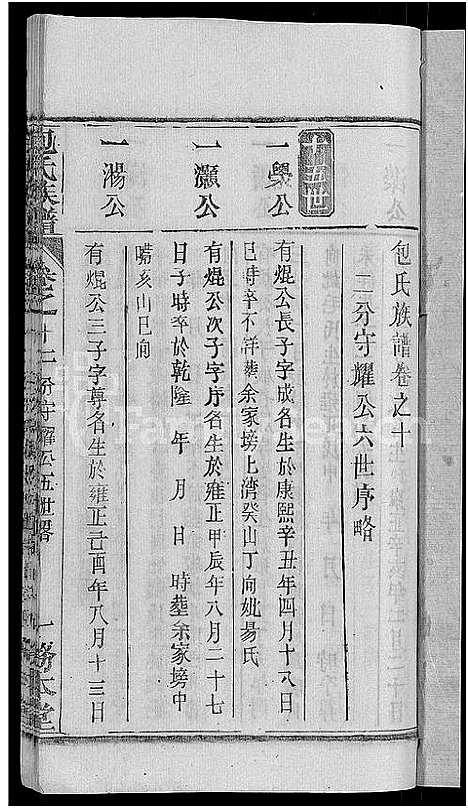 包氏族譜卷之十
二分守耀公六世序略
第五世
一學公
有焜公長子字成名生於康熙辛丑年四月十八日
巳時卒不詳葬余家塝上濟癸山丁向妣楊氏
一灝公
有焜公次子字序名生於雍正甲辰年八月二十七
日子時卒於乾隆 年 月 日 時葬余家塝中
嘴亥山巳向
一湯公
有焜公三子字尊名生於雍正己酉年八月十三日
包氏族譜
卷之十
二分守耀公五世畧
一 務本堂